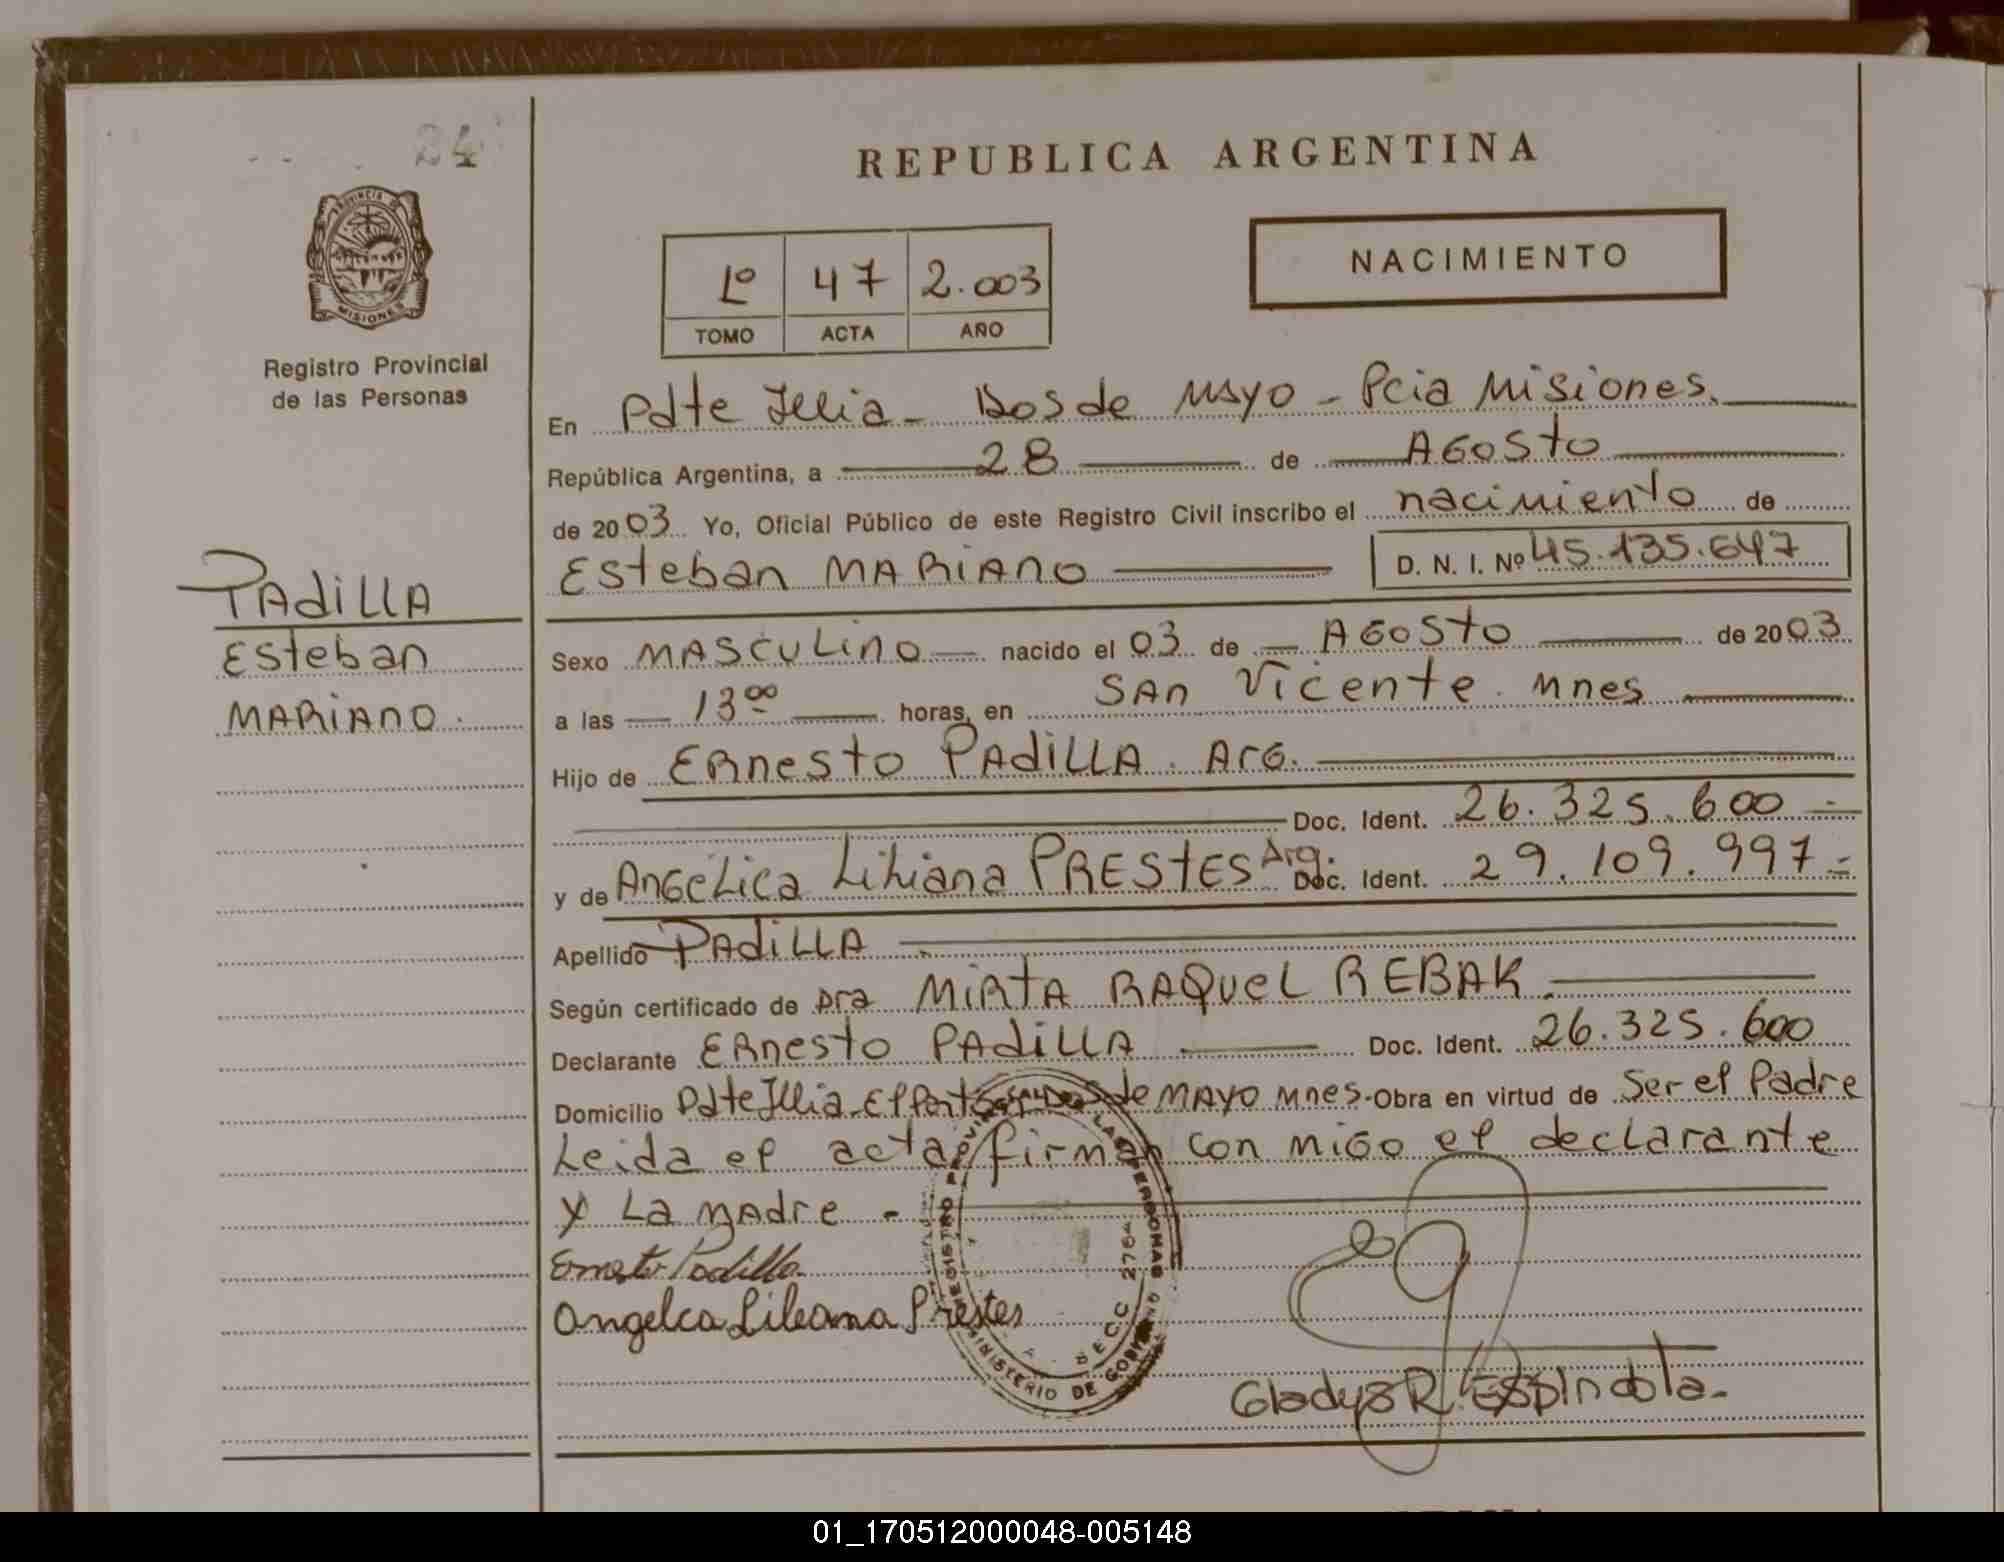 24
REPUBLICA ARGENTINA
PROVINCIA DE
MISIONES
Registro Provincial
de las Personas
1º 47 2.003
TOMO ACTA AÑO
NACIMIENTO
En Pdte Illia - Dos de Mayo - Pcia Misiones.
República Argentina, a 28 de Agosto
de 2003 Yo, Oficial Público de este Registro Civil inscribo el nacimiento de
Esteban MARIANO D. N. I. Nº 45.135.647
PAdiLLA
Esteban
MARIANO.
Sexo MASCULINO nacido el 03 de Agosto de 2003
a las 13 00 horas, en SAn Vicente. Mnes
Hijo de ERnesto PAdiLLA. Arg.
Doc. Ident. 26.325.600
y de AngeLica Liliana PRESTES Arg. Doc. Ident. 29.109.997
Apellido PAdiLLA
Según certificado de Dra MiRtA RAQUeL REBAK.
Declarante ERnesto PAdiLLA Doc. Ident. 26.325.600
Domicilio Pdte Illia - El de MAYO Mnes. Obra en virtud de Ser el Padre
Leida el acta firman con migo el declarante
y La madre -
Ernesto Padilla
Angelca Lileana Prestes
REGISTRO PROVINCIAL DE LAS PERSONAS
MINISTERIO DE GOBIERNO
SECC 2764
Gladys R. Espindola.
01_170512000048-005148